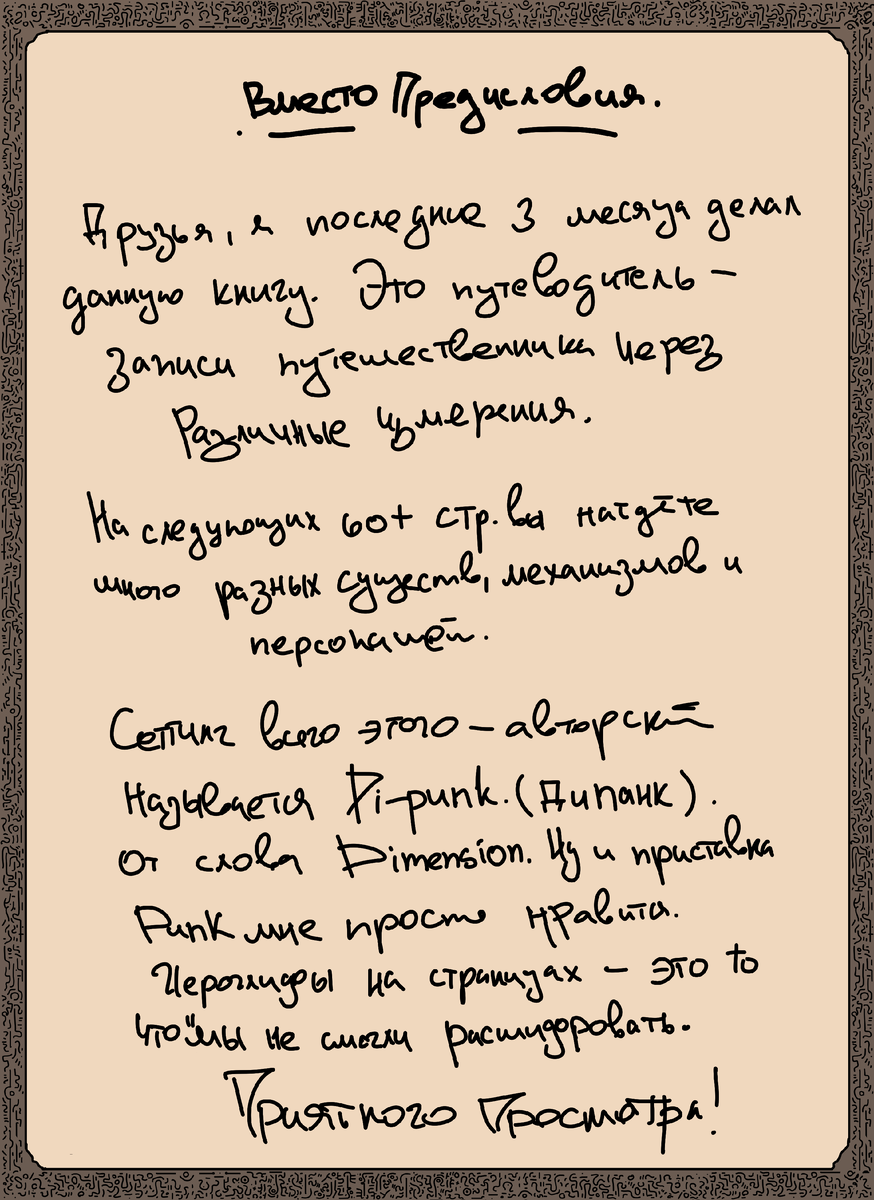 Вместо Предисловия.
Друзья, я последние 3 месяца делал
данную книгу. Это путеводитель –
записи путешественника через
Различные измерения.
На следующих 60+ стр. вы найдёте
много разных существ, механизмов и
персонажей.
Сеттинг всего этого – авторский
Называется Di-punk. (Дипанк).
От слова Dimension. Ну и приставка
Punk мне просто нравится.
Иероглифы на страницах – это то
что "мы не смогли расшифровать.
Приятного Просмотра!